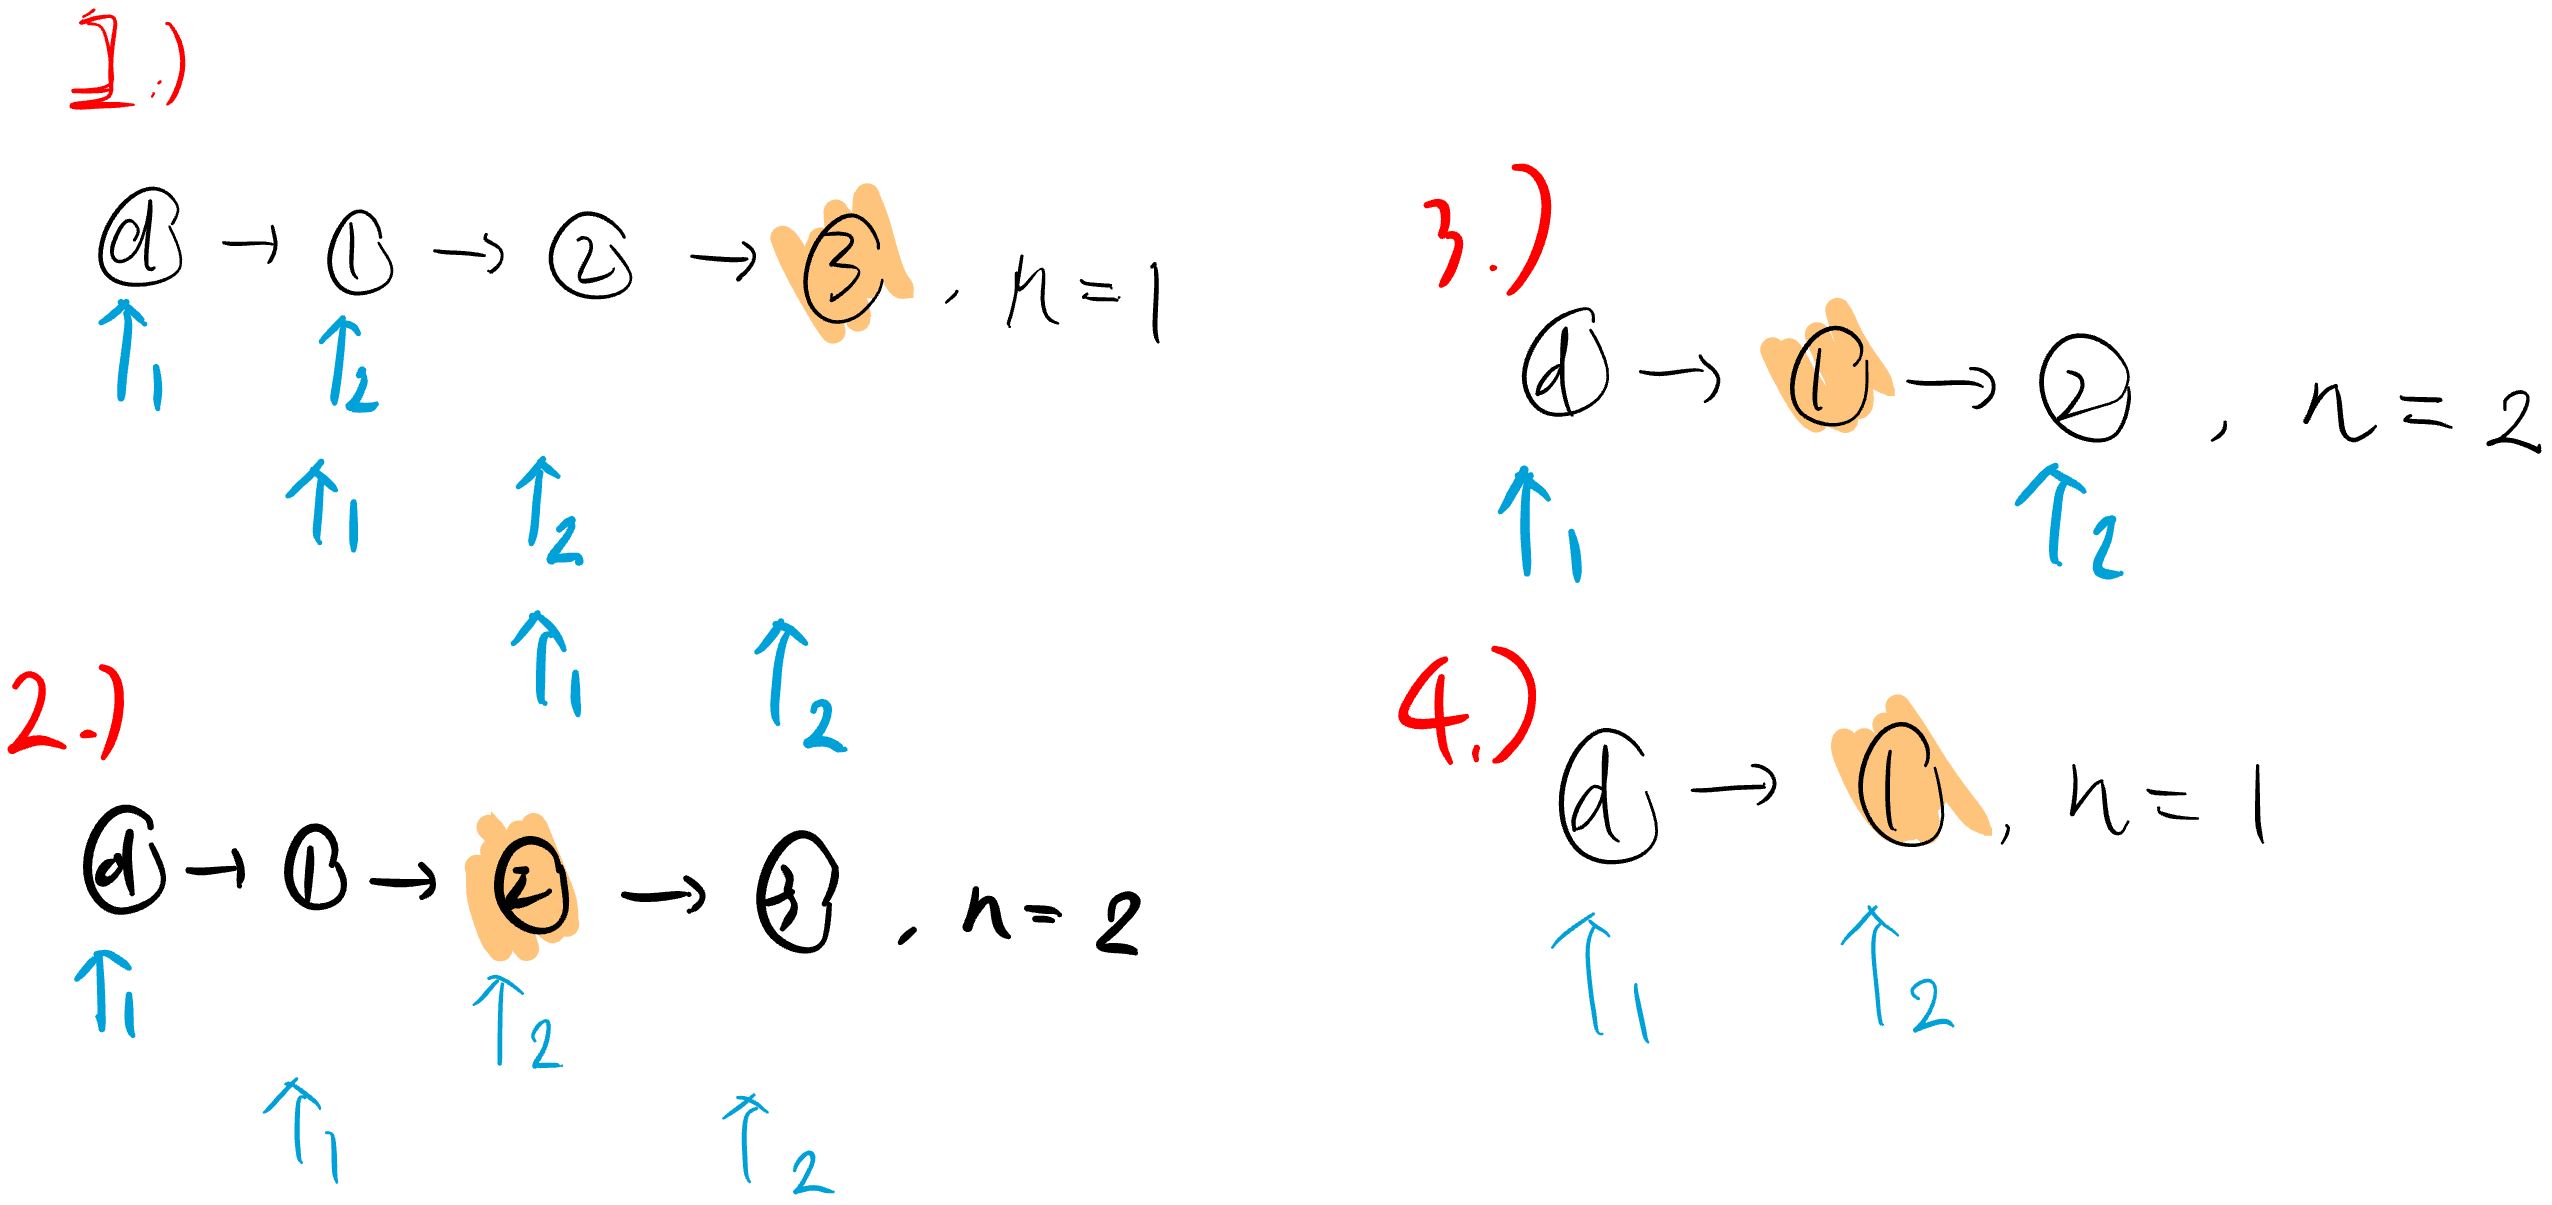 1.)
d → 1 → 2 → 3 , n = 1
↑1 ↑2
↑1 ↑2
↑1 ↑2
2.)
d → 1 → 2 → 3 , n = 2
↑1 ↑2
↑1 ↑2
3.)
d → 1 → 2 , n = 2
↑1 ↑2
4.)
d → 1 , n = 1
↑1 ↑2